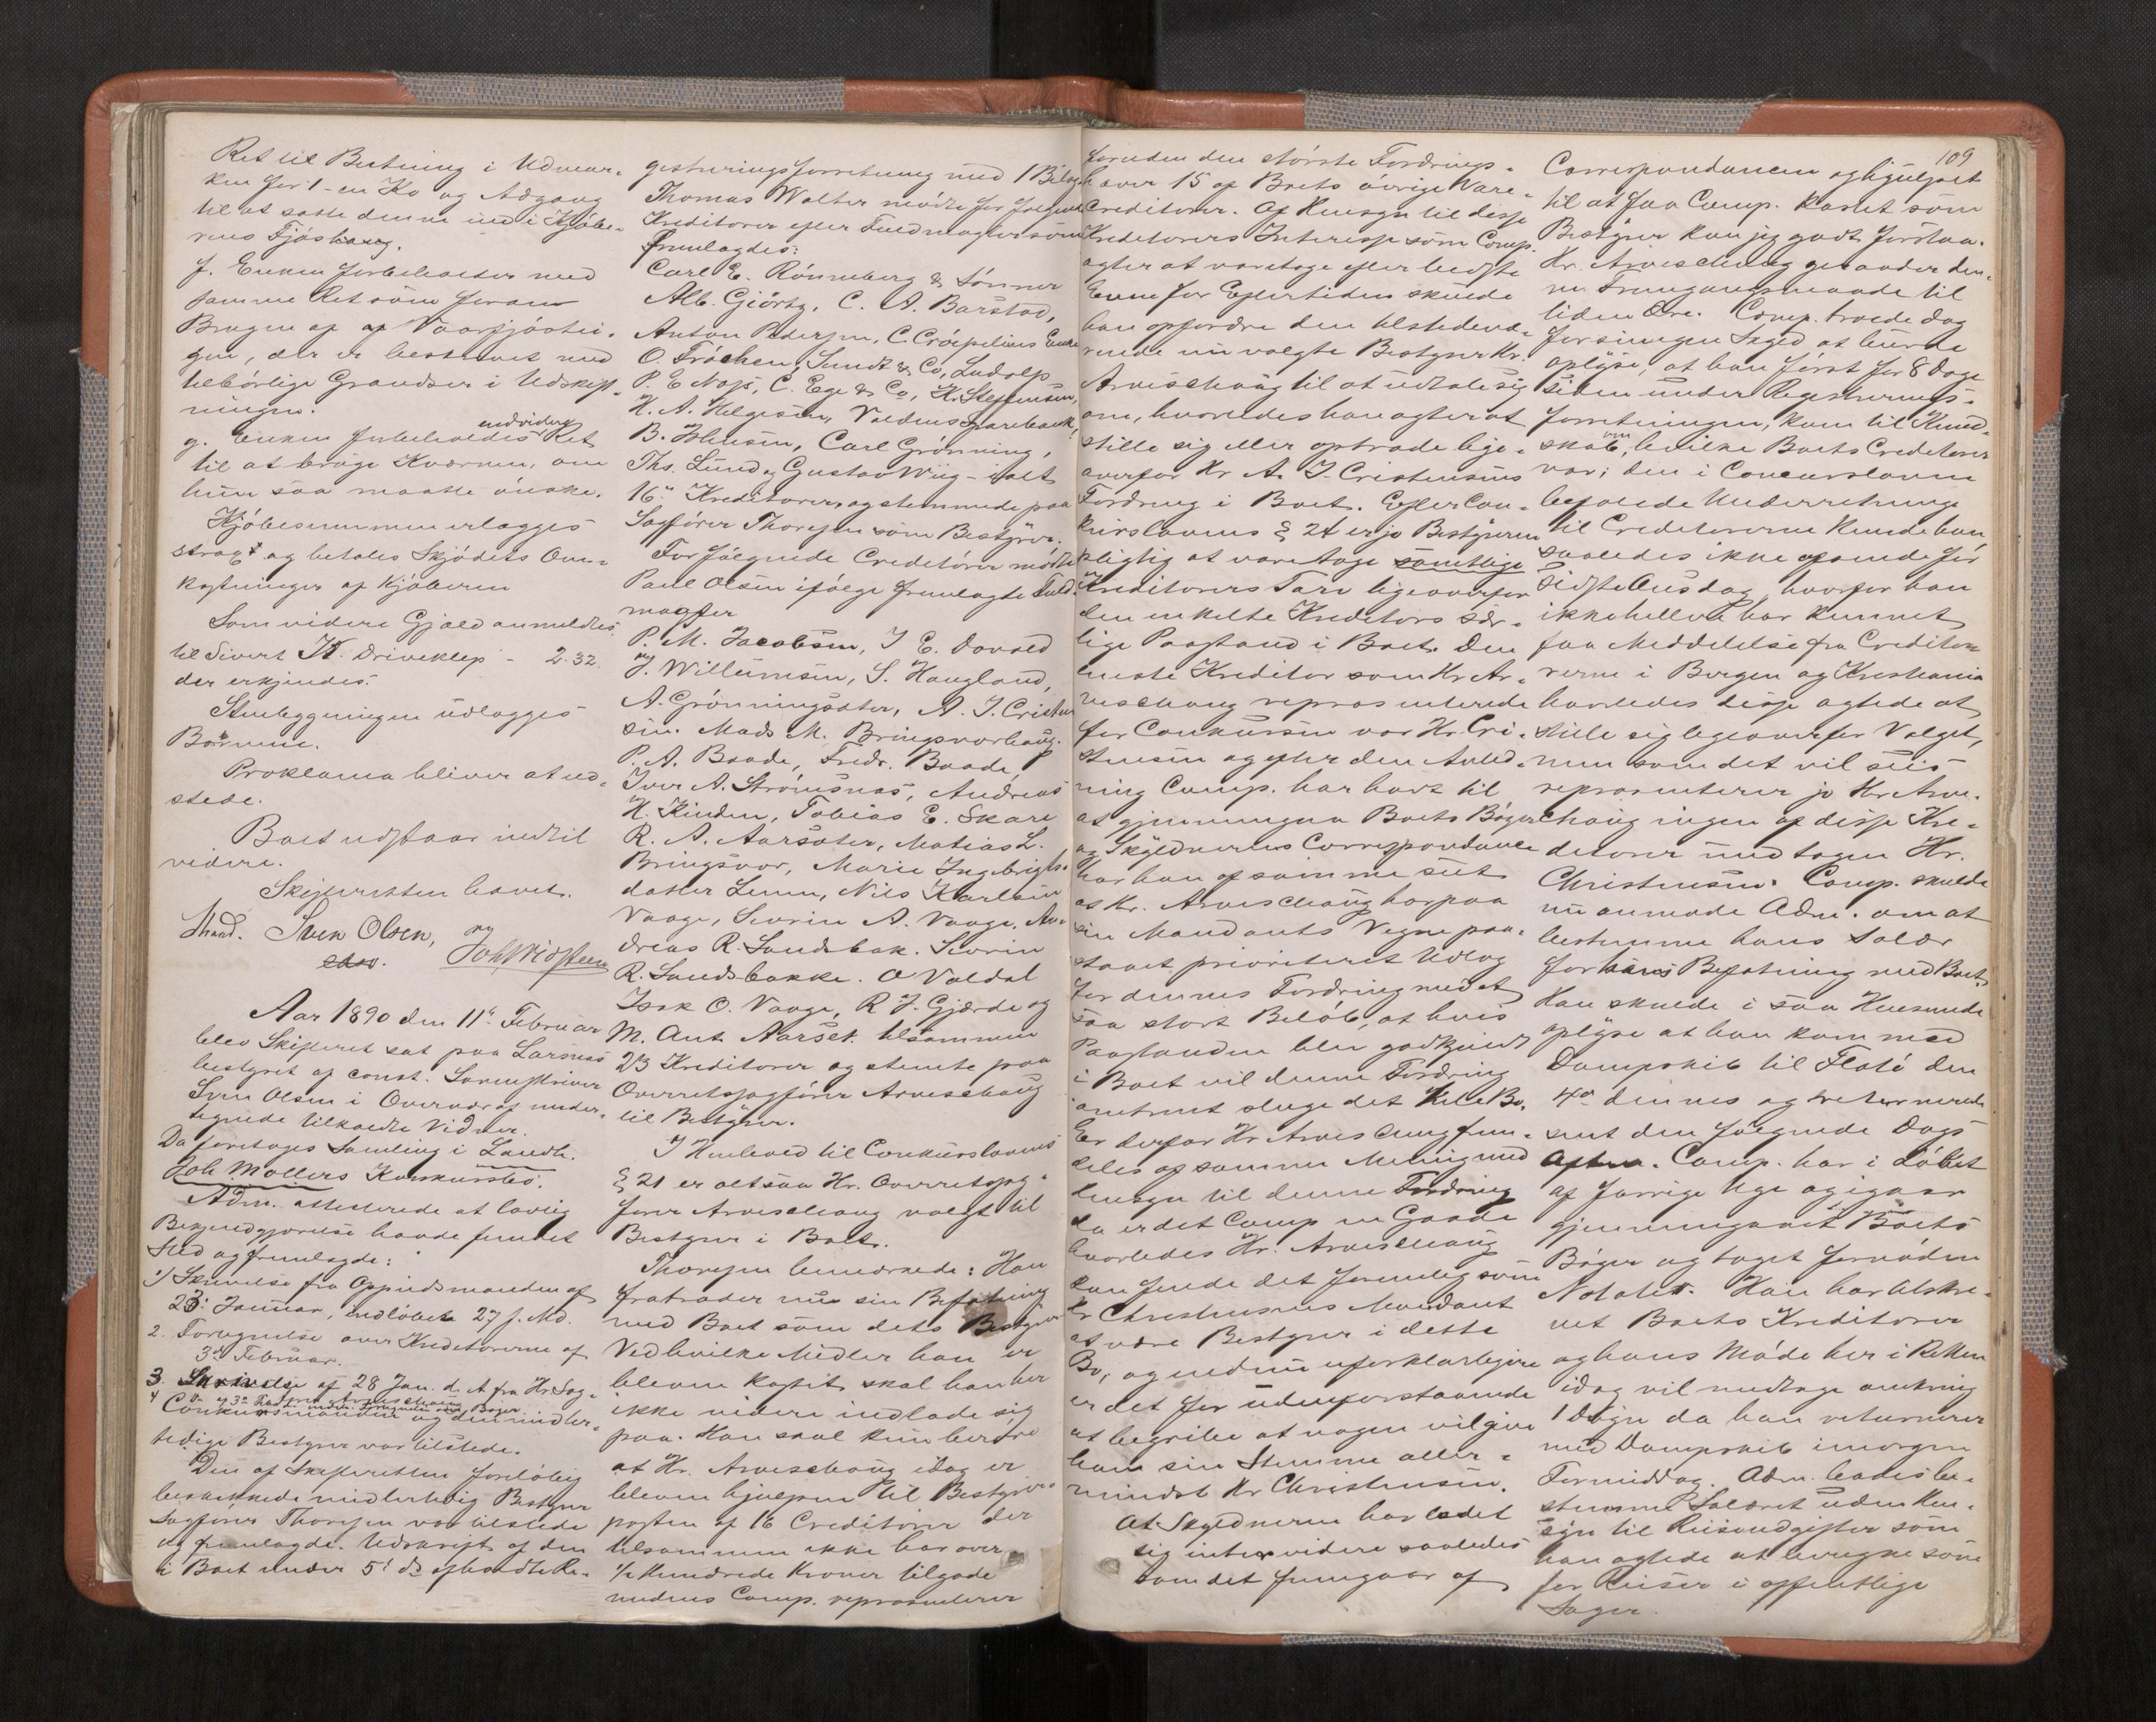 Ret til Beitning i Udmar-
ken for 1 - en Ko og Adgang
til at sætte denne ind i Kjøbe-
rens Fjøshaug.
f. Enken forbeholdes med
samme Ret som foran
Brugen af
gen, der er bestemt med
tilbørlige Grændser i Udskift-
ningen.
g. Enken forbeholdes endvidere Ret
til at bruge Kværnen, om
hun saa maatte ønske.
Kjøbesummen erlægges
strax og betales Skjødets Om-
kostninger af Kjøberen
Som videre Gjæld anmeldtes
til Sivert K. Driveklep - 2.32.
der erkjendes.
Stenbygningen udlægges
Børnene.
Proklama bliver at ud-
stede.
Boet udstaar indtil
videre.
Skifteretten hævet.
Sven Olsen,
Aar 1890 den 11te Februar
blev Skifteret sat paa Larsnes
bestyret af const. Sorenskriver
Sven Olsen i Overvær af under-
tegnede tilkaldte Vidner.
Da foretoges Samling i Landh.
Joh. Møllers Konkursbo.
Adm. attesterede at lovlig
Bekjendtgjørelse havde fundet
Sted og fremlagde:
1) Skrivelse fra Opbudsmanden af
23. Januar, indløbet 27 s. Md.
2. Fortegnelse over Kreditorerne af
3die Februar.
3. Skrivelse af 28 Jan. d. A fra Hr Sag-
4 Konkursmanden og den midler-
tidige Bestyrer var tilstede.
Den af Skifteretten foreløbig
beskikkede midlertidig Bestyrer
Sagfører Thoresen var tilstede
og fremlagde Udskrift af den
i Boet under 5t ds afholdte Re-
gistreringsforretning med 1 Bilag
Thomas Walter mødte for følgende
Kreditorer efter Fuldmagter som
fremlagdes:
Carl E. Rønneberg & Sønner
Alb. Gjørtz, C. A. Barstad,
Anton Pedersen, C. Crøepelins Enke
O. Frøchen, Sundt & Co, Ludolp
P. E Nass, C. Ege & Co, K. Steffensen,
H. A. Helgesen, Voldens Sparebank,
B. Johnsen, Carl Grønning,
Ths. Lund & Gustav Wiig - ialt
16 Kreditorer, og stemmede paa
Sagfører Thoresen som Bestyrer.
For følgende Creditorer mødte
Paul Olsen ifølge fremlagte Fuld-
magter
P. M. Jacobsen, I E. Davald
J. Willumsen, S. Haugland,
A. Grønningsæter, A. I. Cristen
sen. Mads M. Bringsvorhaug.
P. A. Baade, Fredr. Baade,
Iver A. Strømsnæs, Andreas
H. Kinden, Tobias E. Skare
R. A. Aarsæter, Matias L.
Bringsvor, Marie Ingebrigts-
datter Lenin, Nils Karlsen
Vaage, Severin A. Vaage, An-
dreas R. Sandsbak. Severin
R. Sandsbakke. O Valdal
Isak O. Vaage, R J. Gjærde og
M. Ant. Aarset. tilsammen
23 Kreditorer og stemte paa
Overretssagfører Arneschaug
til Bestyrer.
I Henhold til Conkurslovens
§ 21 er altsaa Hr. Overretssag-
fører Arneschaug valgt til
Bestyrer i Boet.
Thoresen bemærkede: Han
fratræder nu sin Befatning
med Boet som dets Bestyrer
Ved hvilke Midler han er
bleven kastet skal han her
ikke videre indlade sig
paa. Han skal kun berøre
at Hr. Arneschaug idag er
bleven hjulpen til Bestyrer-
posten af 16 Creditorer der
tilsammen ikke har over
½ Hundrede Kroner tilgode
medens Comp. repræsenterer
109
foruden den største Fordrings-
haver 15 af Boets øvrige Vare-
Creditorer. Af Hensyn til disse
Kreditorers Interesse som Comp.
agter at varetage efter bedste
Evne for Eftertiden skulde
han opfordre den tilstedevæ-
rende nu valgte Bestyrer Hr.
Arneschaug til at udtale sig
om, hvorledes han agter at
stille sig eller optræde lige-
overfor Hr A. I. Cristensens
Fordring i Boet. Efter Con-
kurslovens § 24 er jo Bestyreren
pligtig at varetage samtlige
Kreditorers Tarv ligeoverfor
den enkelte Kreditors sær-
lige Paastand i Boet. Den
eneste Kreditor som Hr Ar-
neschaug repræsenterede
før Conkursen var Hr Cri-
stensen og efter den Anled-
ning Comp. har havt til
at gjennemgaa Boets Bøger
og Skyldnerens Correspondance
har han af samme seet
at Hr. Arneschaug har paa
sin Mandants Vegne paa-
staaet prioriteret Udlæg
for dennes Fordring med et
saa stort Beløb, at hvis
Paastanden blev godkjendt
i Boet vil denne Fordring
omtrent sluge det hele Bo.
Er derfor Hr Arneschaug frem-
deles af samme Mening med
Hensyn til denne Fordring
da er det Comp en Gaade
hvorledes Hr. Arneschaug
kan finde det foreneligt som
Hr Christensens Mandant
at være Bestyrer i dette
Bo, og endnu uforklarligere
er det for udenforstaaende
at begribe at nogen vil give
ham sin Stemme aller-
mindst Hr Christensen.
At Skyldneren har ladet
sig intervidere saaledes
som det fremgaar af
Correspondancen og hjulpet
til at faa Comp. kastet som
Bestyrer kan jeg godt forstaa.
Hr. Arneschaug geraader den-
ne Fremgangsmaade til
liden Ære. Comp. troede dog
for sin egen Skyld at burde
oplyse, at han først for 8 Dage
siden under Registrerings-
forretningen, kom til Kund-
skab om, hvilke Boets Creditorer
var; den i Concursloven
befalede Underretning
til Creditorerne kunde han
saaledes ikke afsende før
sidste Onsdag, hvorfor han
ikke heller har kunnet
faa Meddelelse fra Credito-
rerne i Bergen og Kristiania
hvorledes disse agtede at
stille sig ligeoverfor Valget,
men som det vil sees
repræsenterer jo Hr Arne-
schaug ingen af disse Kre-
ditorer undtagen Hr.
Christensen. Comp. skulde
nu anmode Adm. om at
bestemme hans Salær
for hans Befatning med Boet.
Han skulde i saa Henseende
oplyse at han kom med
Dampskib til Flatø den
4de dennes og returnerede
sent den følgende Dags
Aften. Comp. har i Løbet
af forrige Uge og igaar
gjennemgaaet Boets
Bøger og taget fornøden
Notater. Han har tilskre-
vet Boets Kreditorer
og hans Møde her i Retten
idag vil medtage omkring
1 Døgn da han returnerer
med Dampskib imorgen
Formiddag. Adm. bades be-
stemme Salæret uden Hen-
syn til Reiseudgifter som
han agtede at beregne som
for Reiser i offentlige
Sager.